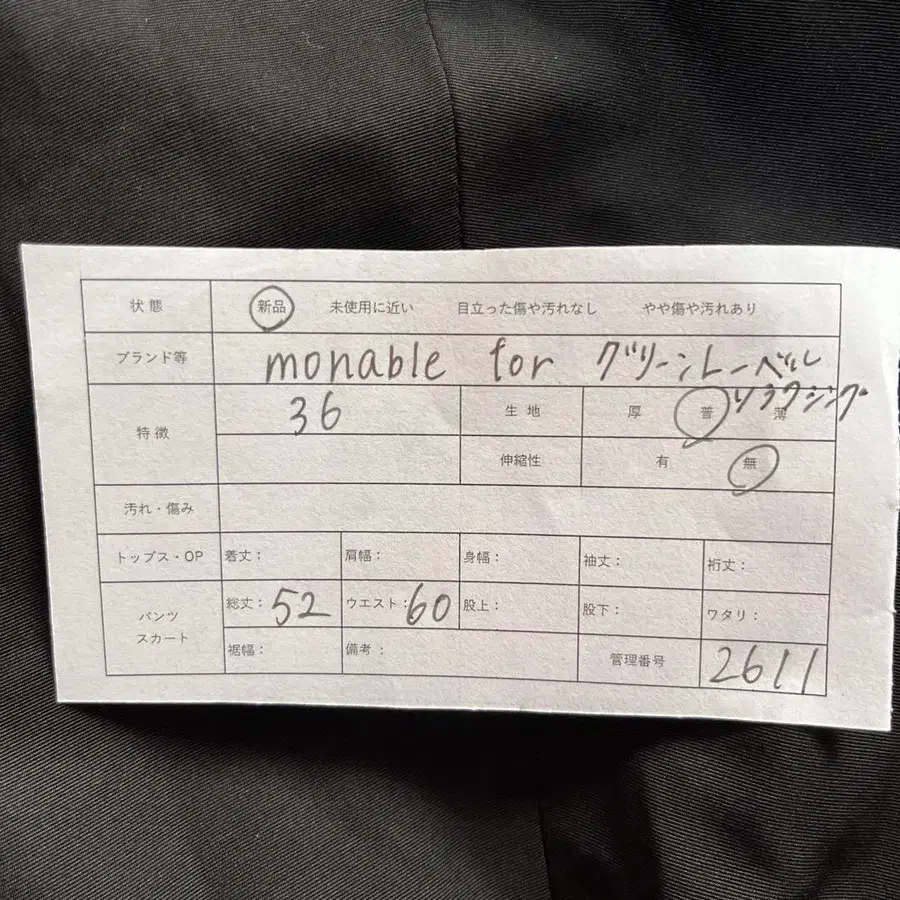 状態 新品 未使用に近い 目立った傷や汚れなし やや傷や汚れあり
ブランド等 monable for グリーンレーベル
リラクシング
特徴 36 生地 厚 普 薄
伸縮性 有 無
汚れ・傷み
トップス・OP 着丈: 肩幅: 身幅: 袖丈: 裄丈:
パンツ スカート 総丈: 52 ウエスト: 60 股上: 股下: ワタリ:
裾幅: 備考: 管理番号 2611